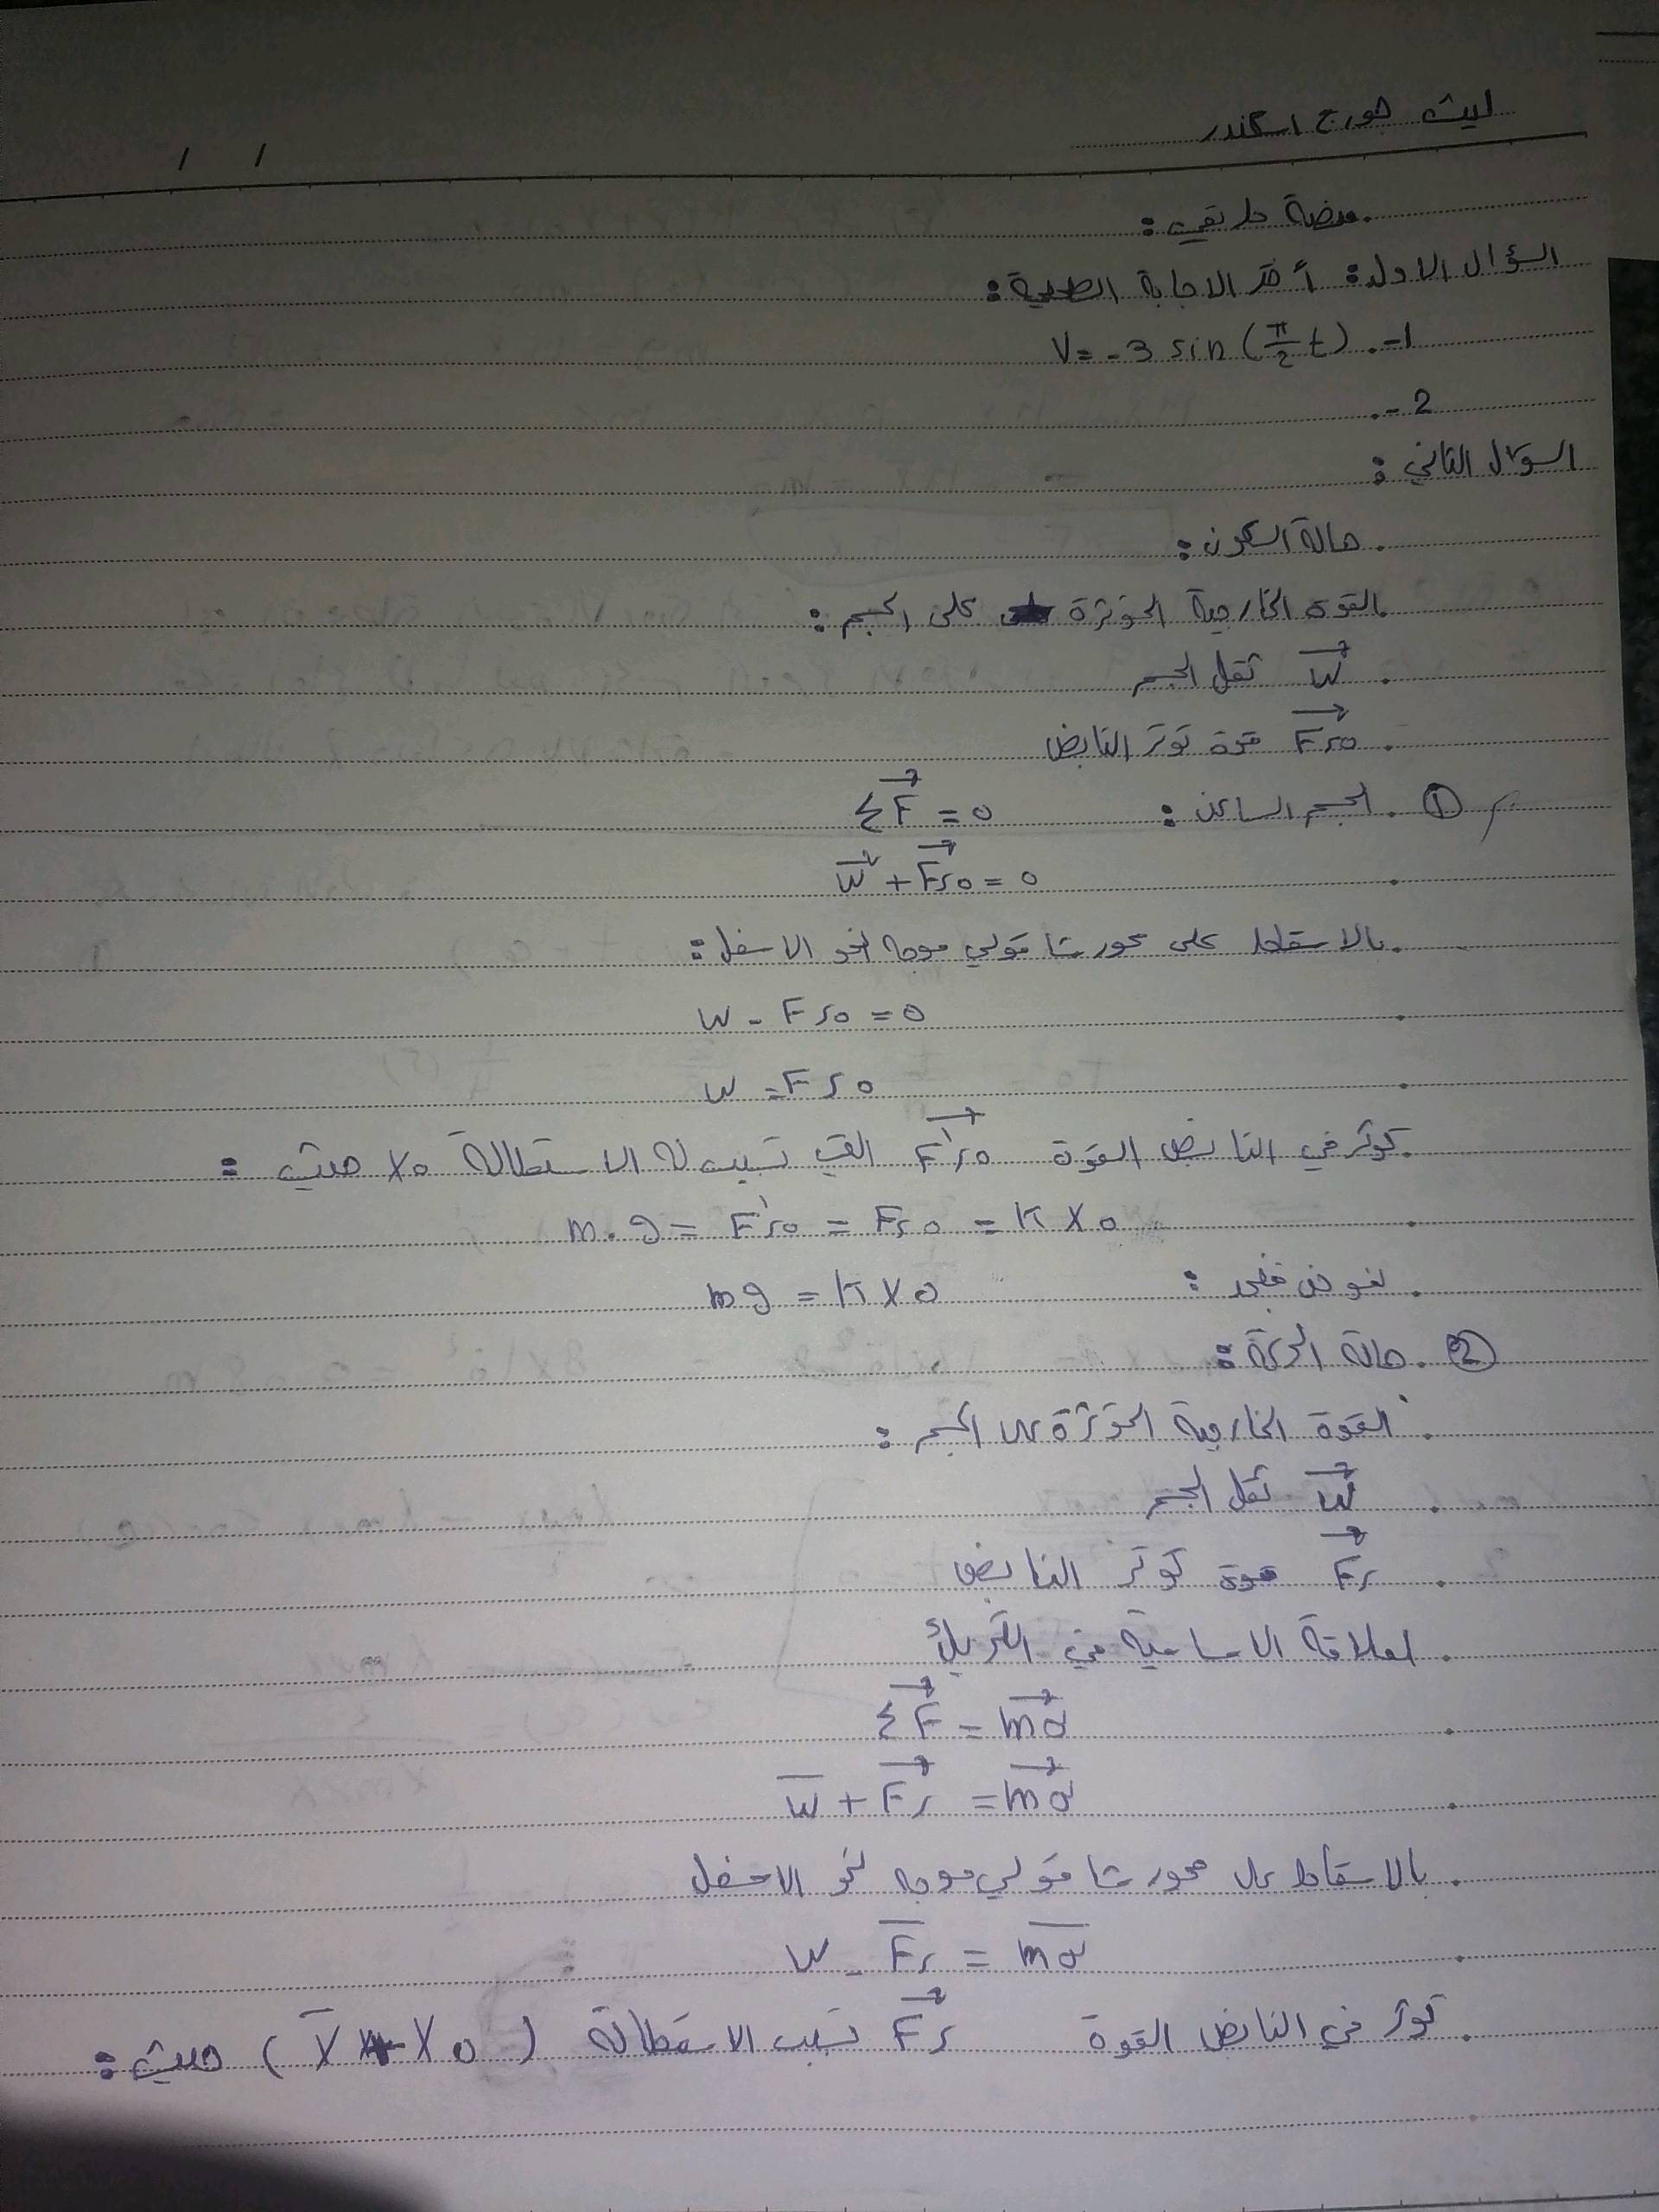 ليث جورج اسكندر
/ /
منصة طريقي :
السؤال الاول : أختر الاجابة الصحيحة :
1- V = - 3 sin (π/2 t)
2 -
السؤال الثاني :
حالة السكون :
القوى الخارجية المؤثرة على الجسم :
W⃗ ثقل الجسم
F⃗s0 قوة توتر النابض
① الجسم الساكن : ΣF⃗ = 0
W⃗ + F⃗s0 = 0
بالاسقاط على محور شاقولي موجه نحو الاسفل :
W - Fs0 = 0
W = Fs0
تؤثر في النابض القوة F⃗'s0 التي تسبب له الاستطالة X0 حيث :
m . g = F's0 = Fs0 = K X0
نعوض فنجد : mg = K X0
② حالة الحركة :
القوة الخارجية المؤثرة على الجسم :
W⃗ ثقل الجسم
F⃗s قوة توتر النابض
لعلاقة الاساسية في التحريك
ΣF⃗ = ma⃗
W̅ + F⃗s = ma⃗
بالاسقاط على محور شاقولي موجه نحو الاسفل
W - F̅s = m̅a̅
تؤثر في النابض القوة F⃗s تسبب الاستطالة ( X̅ + X0 ) حيث :